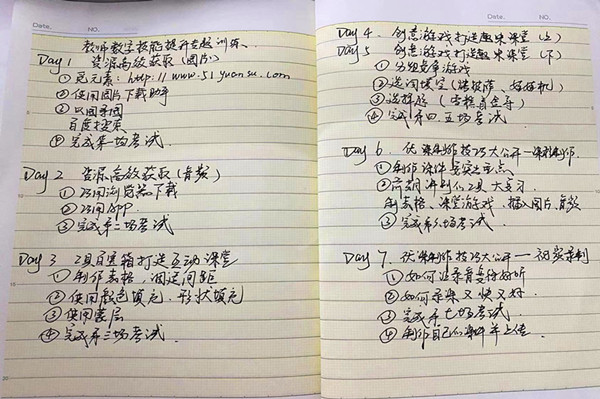 Date.    NO.
教师数字技能提升专题训练.
Day 1 资源高效获取(图片)
①觅元素:http://www.51yuansu.com
②使用图片下载助手
③以图寻图
百度搜索
④完成第一场考试
Day 2 资源高效获取(音频)
①巧用浏览器下载
②巧用APP.
③完成第二场考试
Day 3 工具百宝箱打造互动课堂
①制作表格,固定间距
②使用颜色填充,形状填充
③使用蒙层
④完成第三场考试
Date.    NO.
Day 4. 创意游戏打造趣味课堂(上)
Day 5 创意游戏打造趣味课堂(下)
①分组竞争游戏
②选词填空
③选择题
④完成第四、五场考试
Day 6. 优课制作技巧大公开一课件制作.
①制作课件要突出重点
利表格、课堂游戏、插入图片、音频
③完成第六场考试.
Day 7. 优课制作技巧大公开一视频录制
①如何让录音变得好听
②如何录课又快又好.
③完成第七场考试.
④制作自己的课件并上传.